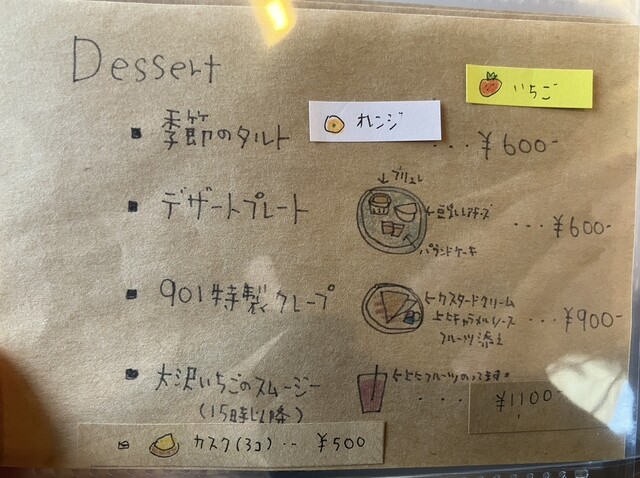 Dessert
いちご
オレンジ
■ 季節のタルト ... ¥600-
■ デザートプレート ... ¥600-
↓ブリュレ
パウンドケーキ
■ 901特製クレープ ... ¥900-
カスタードクリーム
キャラメルソース
フルーツ添え
■ 大沢いちごのスムージー ... ¥1100-
(15時以降)
フルーツのってます。
カヌレ(3コ)... ¥500